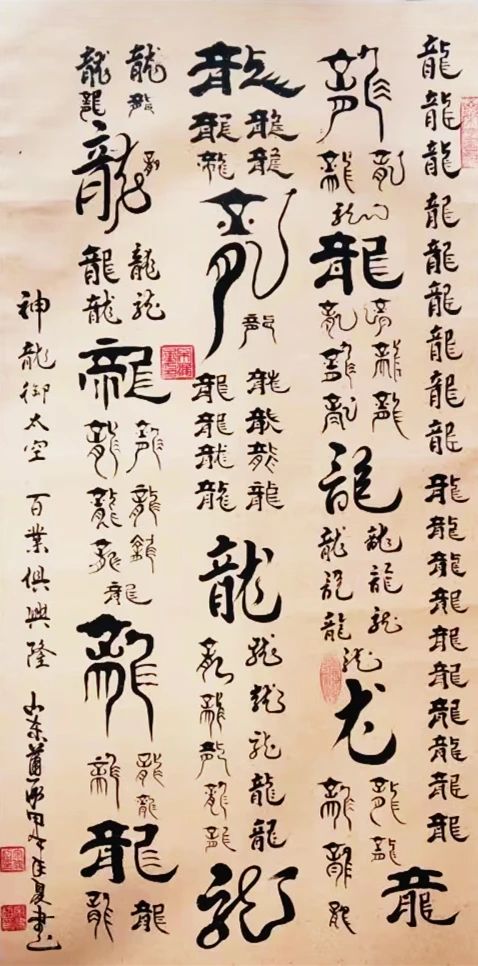 龍龍龍龍龍龍龍龍龍龍龍龍龍龍龍龍龍龍龍龍
龍龍龍龍龍龍龍龍龍龍龍龍龍龍龍龍龍龍龍龙龍龍龍龍龍
龍龍龍龍龍龍龍龍龍龍龍龍龍龍龍龍龍龍龍龍龍龍龍龍龍龍龍
龍龍龍龍龍龍龍龍龍龍龍龍龍龍龍龍龍龍龍龍龍龍龍龍龍
神龍御太空 百業俱興隆 山东 年夏書